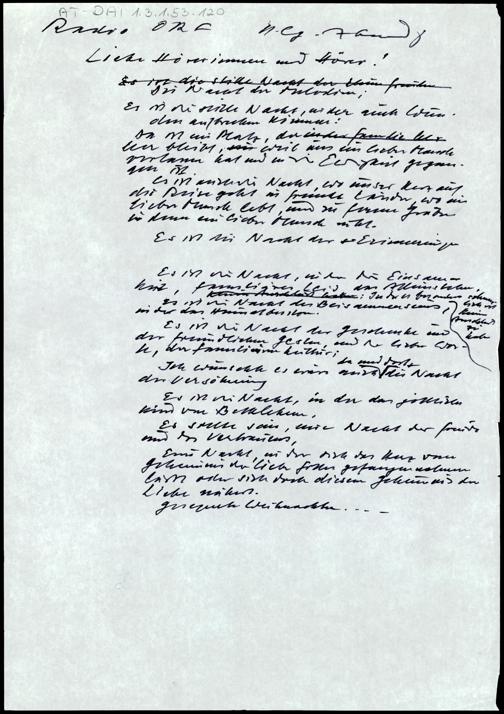 AT-DAI 1.3.1.53.120
Radio ORF
Liebe Hörerinnen und Hörer!
Es ist die stille Nacht der
Die Nacht der Melodien;
Es ist die stille Nacht, in der auch Wun-
den aufbrechen können:
Da ist ein Platz, der in der Familie
leer bleibt, weil uns ein lieber Mensch
verlassen hat und in die Ewigkeit gegan-
gen ist.
Es ist auch die Nacht, wo unser Herz auf
die Reise geht in fremde Länder, wo ein
lieber Mensch lebt, und zu fernen Gräbern
in denen ein lieber Mensch ruht.
Es ist die Nacht der Erinnerungen
Es ist die Nacht, in der die Einsam-
keit, das Alleinsein,
Es ist die Nacht des Beisammenseins,
in der das
Es ist die Nacht der Geschenke und
der freundlichen Gesten, und der lieben Wor-
te, der familiären Kultur;
Ich wünschte es wäre auch da und dort die Nacht
der Versöhnung
Es ist die Nacht, in der das göttliche
Kind von Bethlehem,
Es sollte sein, eine Nacht der Freude
und des Vertrauens,
Eine Nacht, in der sich das Herz vom
Geheimnis der Liebe Gottes gefangennehmen
lässt oder sich doch diesem Geheimnis der
Liebe nähert.
Gesegnete Weihnachten . . . .